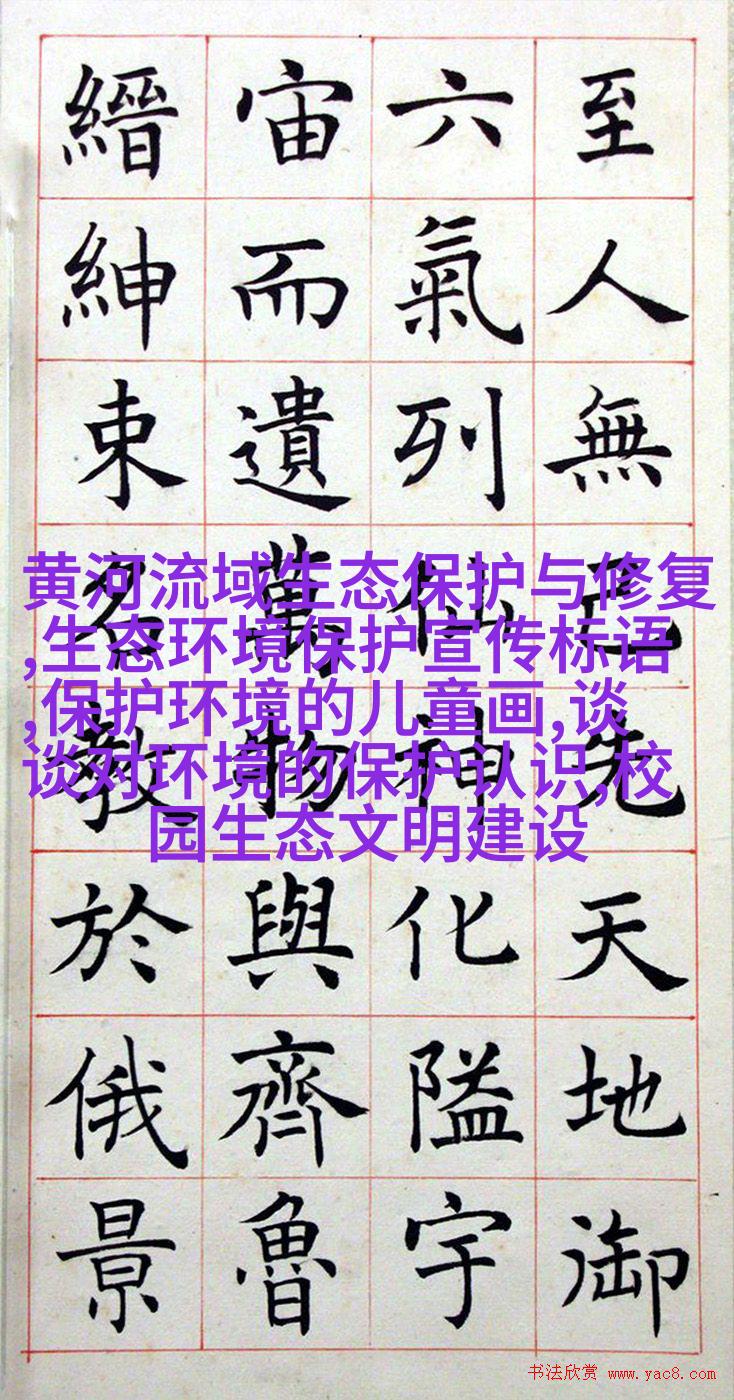 至人無己先天地御
六氣列仙神化隘宇
宙而遺萬物與齊魯
縉紳束名教於俄景
黄河流域生态保护与修复
,生态环境保护宣传标语
,保护环境的儿童画,谈
谈对环境的保护认识,校
园生态文明建设
书法欣赏 www.yac8.com